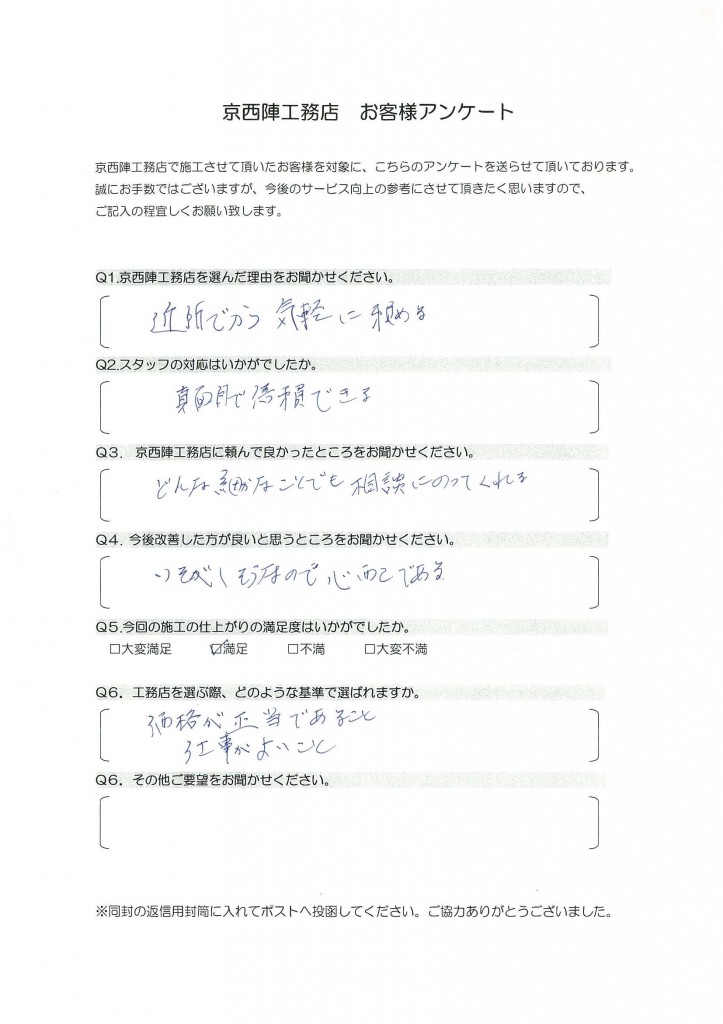 京西陣工務店　お客様アンケート
京西陣工務店で施工させて頂いたお客様を対象に、こちらのアンケートを送らせて頂いております。
誠にお手数ではございますが、今後のサービス向上の参考にさせて頂きたく思いますので、
ご記入の程宜しくお願い致します。
Q1.京西陣工務店を選んだ理由をお聞かせください。
近所だから 気軽に 頼める
Q2.スタッフの対応はいかがでしたか。
真面目で信頼できる
Q3. 京西陣工務店に頼んで良かったところをお聞かせください。
どんな細かなことでも 相談にのってくれる
Q4. 今後改善した方が良いと思うところをお聞かせください。
いそがしそうなので 心配である
Q5.今回の施工の仕上がりの満足度はいかがでしたか。
□大変満足　☑満足　□不満　□大変不満
Q6. 工務店を選ぶ際、どのような基準で選ばれますか。
価格が正当であること
仕事がよいこと
Q6. その他ご要望をお聞かせください。
※同封の返信用封筒に入れてポストへ投函してください。ご協力ありがとうございました。